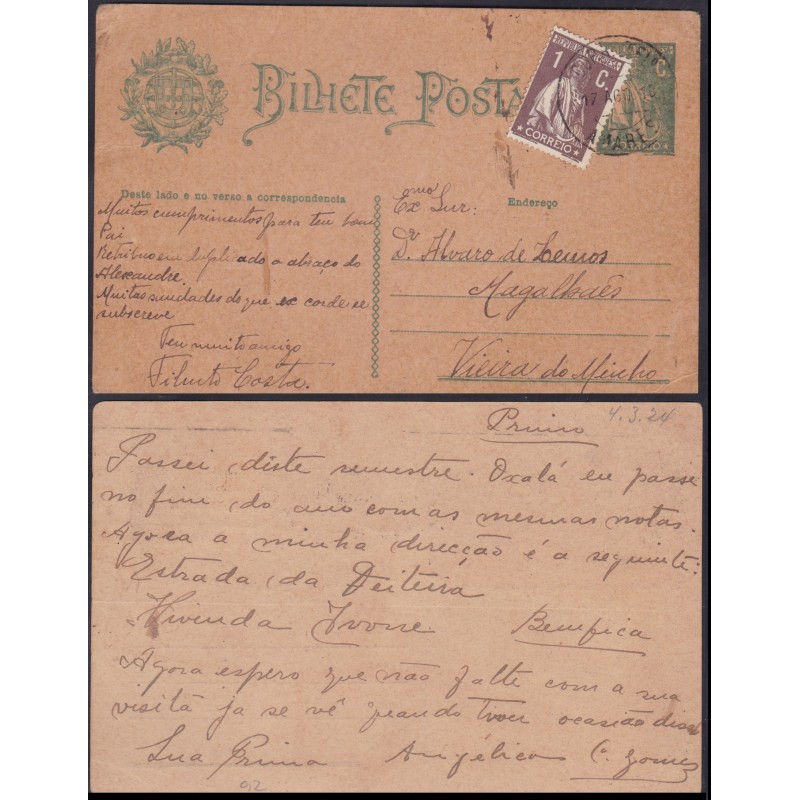 BILHETE POSTA
REPUBLICA PORTUGUESA
1 C.
CORREIO
C.
17 AGO
AMARE
Deste lado e no verso a correspondencia
Endereço
Muitos cumprimentos para teu bom
Pai
Retribuo em duplicado o abraço do
Alexandre.
Muitas saudades do que ex corde se
subscreve
Teu muito amigo
Filinto Costa.
Exmo Snr:
Dr Alvaro de Lemos
Magalhães
Vieira do Minho
4.3.24
Primo
Passei deste semestre. Oxalá eu passe
no fim do ano com as mesmas notas.
Agora a minha direcção é a seguinte:
Estrada da
Vivenda Ivone Bemfica
Agora espero que não falte com a sua
visita ja se vê quando tiver ocasião
Sua Prima Angélica C. Gomes
0,2